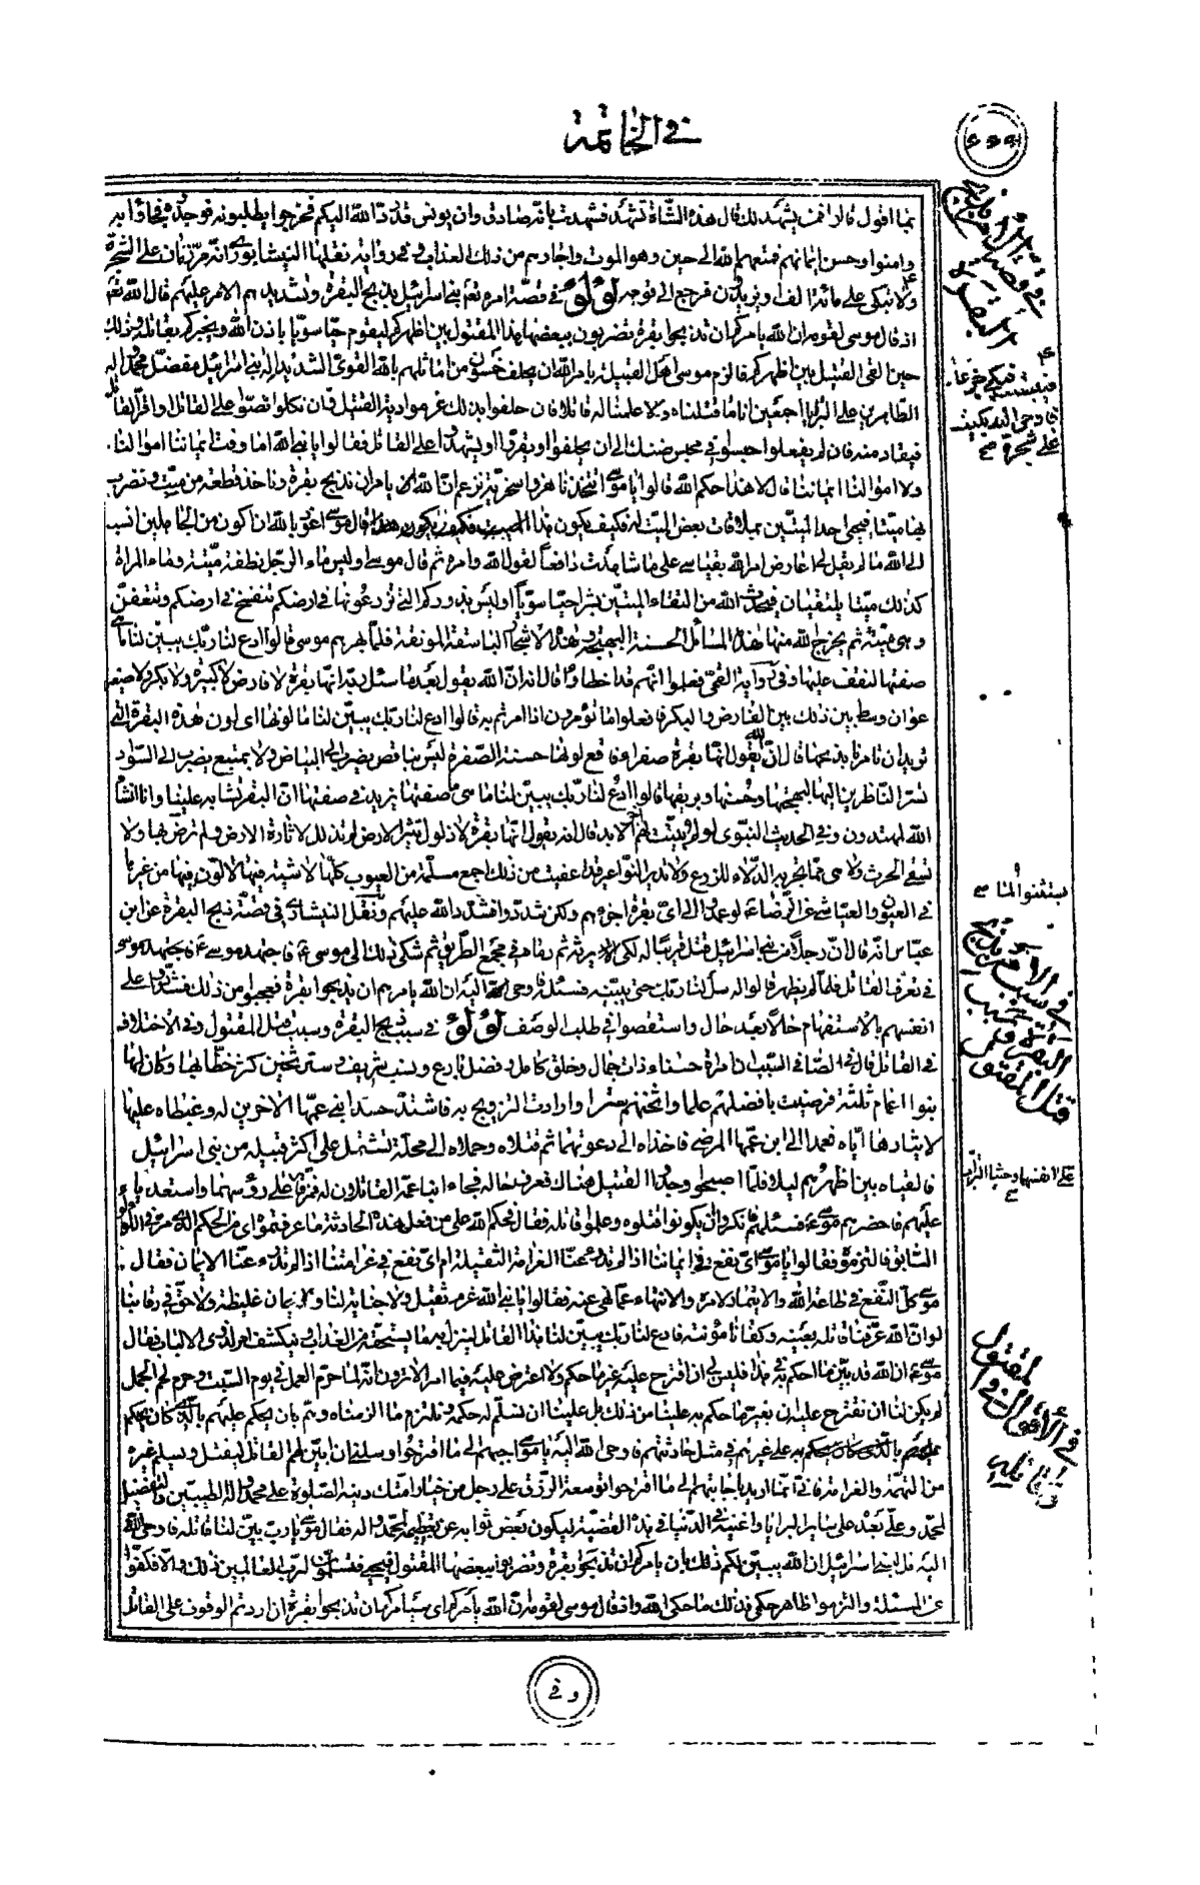 في الخاتمة
بما اقول قالوا فمن يشهد لك قال هذه الشاة تشهد فشهدت بانه صادق وان يونس قد رده الله اليكم فخرجوا يطلبونه فوجدوه فجاؤا به
وامنوا وحسن ايمانهم فمتعهم الله الى حين وهو الموت واجارهم من ذلك العذاب وفي رواية نقلها النيشابوري انه مر زمان على الشجرة
ولا تبكي على مائة الف او يزيدون فرجع الى قومه لؤلؤ في قصة امره تعم بني اسرائيل بذبح البقرة وتشديدهم الامر عليهم قال الله تعم
اذ قال موسى لقومه ان الله يامركم ان تذبحوا بقرة تضربون ببعضها هذا المقتول بين اظهركم ليقوم حيا سويا باذن الله ويخبركم بقاتله وذلك
حين القي القتيل بين اظهركم فالزم موسى اهل القبيلة بامر الله ان يحلف خمسون من اماثلهم بالله القوي الشديد اله بني اسرائيل مفضل محمد واله
الطاهرين على البرايا اجمعين انا ما قتلناه ولا علمنا له قاتلا فان حلفوا بذلك غرموا دية القتيل فان نكلوا نصوا على القاتل واقر القاتل
فيقاد منه فان لم يفعلوا حبسوا في محبس ضنك الى ان يحلفوا او يقروا او يشهدوا على القاتل فقالوا يا نبي الله اما وقت ايماننا اموالنا
ولا اموالنا ايماننا قال لا هذا حكم الله قالوا يا موسى اتتخذنا هزوا سخرية تزعم ان الله يامر ان نذبح بقرة وناخذ قطعة من ميت ونضرب
بها ميتا فيحيى احد الميتين بملاقات بعض الميت له فكيف يكون هذا قال موسى اعوذ بالله ان اكون من الجاهلين انسب
الى الله ما لم يقل لي اعارض امر الله بقياسي على ما شاهدت دافعا لقول الله وامره ثم قال موسى اوليس ماء الرجل نطفة ميتة وماء المراة
كذلك ميتا يلتقيان فيحدث الله من التقاء الميتين بشرا حيا سويا اوليس بذوركم التي تزرعونها في ارضكم تتفسخ في ارضكم وتتعفن
وهي ميتة ثم يخرج الله منها هذه السنابل الحسنة البهيجة وهذه الاشجار الباسقة المونقة فلما بهرهم موسى قالوا ادع لنا ربك يبين لنا ما هي
صفتها لنقف عليها وفي رواية القمي فعلموا انهم قد اخطاوا قال انه ان الله يقول بعد ما سئل ربه انها بقرة لا فارض لا كبيرة ولا بكر ولا صغيرة
عوان وسط بين ذلك بين الفارض والبكر فافعلوا ما تؤمرون اذا امرتم به قالوا ادع لنا ربك يبين لنا ما لونها اي لون هذه البقرة التي
تريد ان تامرنا بذبحها قال ان الله يقول انها بقرة صفراء فاقع لونها حسنة الصفرة ليس بناقص يضرب الى البياض ولا بمشبع يضرب الى السواد
تسر الناظرين اليها لبهجتها وحسنها وبريقها قالوا ادع لنا ربك يبين لنا ما هي ما صفتها يزيد في صفتها ان البقر تشابه علينا وانا انشاء
الله لمهتدون وفي الحديث النبوي لو لم يبينت لهم اخر الابد قال انه يقول انها بقرة لا ذلول تثير الارض لم تذلل لاثارة الارض ولم ترض بها ولا
تسقي الحرث ولا هي مما تجر به الدلاء للزرع ولا تدير النواعير قد اعفيت من ذلك اجمع مسلمة من العيوب كلها لا شية فيها لا لون فيها من غيرها
في العيون والعياشي عن الرضا ع لو عمدوا الى اي بقرة اجزءهم ولكن شددوا فشدد الله عليهم ونقل النيشابوري في قصة ذبح البقرة عن ابن
عباس انه قال ان رجلا من بني اسرائيل قتل قريبا له لكي يرثه ثم رماه في مجمع الطريق ثم شكى ذلك الى موسى ع فاجتهد موسى
في تعرف القاتل فلما لم يظهر قالوا له سل لنا ربك حتى يبينه فسئله فاوحى اليه ان الله يامرهم ان تذبحوا بقرة فعجبوا من ذلك فشددوا على
انفسهم بالاستفهام حالا بعد حال واستقصوا في طلب الوصف لؤلؤ في سبب ذبح البقرة وسبب قتل المقتول وفي الاختلاف
في القاتل قال في الصافي السبب ان امرة حسناء ذات جمال وخلق كامل وفضل بارع ونسب شريف وستر ثخين كثر خطابها وكان لها
بنوا اعمام ثلثة فرضيت بافضلهم علما واثخنهم سترا وارادت التزويج به فاشتد حسد ابني عمها الاخرين له وغبطاه عليها
لايثارها اياه فعمدا الى ابن عمها المرضي فاخذاه الى دعوتهما ثم قتلاه وحملاه الى محلة تشتمل على اكثر قبيلة من بني اسرائيل
فالقياه بين اظهرهم ليلا فلما اصبحوا وجدوا القتيل هناك فعرف حاله فجاء ابنا عمه القاتلان له فمزقا على رؤسهما واستعديا
عليهم فاحضرهم موسى ع فسئلهم فانكروا ان يكونوا قتلوه وعلموا قاتله فقال فحكم الله على من فعل هذه الحادثة ما عرفتموه اي من الحكم الذي مر في اللؤلؤ
السابق فالتزموه فقالوا يا موسى اي نفع في ايماننا اذا لم تدرء عنا الغرامة الثقيلة ام اي نفع في غرامتنا اذا لم تدرء عنا الايمان فقال
موسى كل النفع في طاعة الله والايتمار لامره والانتهاء عما نهى عنه فقالوا يا نبي الله غرم ثقيل ولا جناية لنا وايمان غليظة ولا حق في رقابنا
لو ان الله عرفنا قاتله بعينه وكفانا مؤنته فادع لنا ربك يبين لنا هذا القاتل لينزل به ما يستحقه من العذاب وينكشف امره لذوي الالباب فقال
موسى ع ان الله قد بين ما احكم به في هذا فليس لي ان اقترح عليه غير ما حكم ولا اعترض عليه فيما امر الا ترون انه لما حرم العمل في يوم السبت وحرم لحم الجمل
لم يكن لنا ان نقترح عليه ان يغير ما حكم به علينا من ذلك بل علينا ان نسلم له حكمه ونلتزم ما الزمناه وهم بان يحكم عليهم بالذي كان يحكم
به على غيرهم في مثل حادثتهم فاوحى الله اليه يا موسى اجبهم الى ما اقترحوا وسلني ان ابين لهم القاتل ليقتل ويسلم غيره
من التهمة والغرامة فاني انما اريد باجابتهم الى ما اقترحوا توسعة الرزق على رجل من خيار امتك دينه الصلوة على محمد واله الطيبين والتفضيل
لمحمد وعلي بعده على ساير البرايا اغنيه في الدنيا في هذه القضية ليكون بعض ثوابه عن تعظيمه لمحمد واله فقال موسى يا رب بين لنا قاتله فاوحى الله
اليه قل لبني اسرائيل ان الله يبين لكم ذلك بان يامركم ان تذبحوا بقرة وتضربوا ببعضها المقتول فيحيى فتسلمون لرب العالمين ذلك والا فكفوا
عن المسئلة والتزموا ظاهر حكمي فذلك ما حكى الله واذ قال موسى لقومه ان الله يامركم اي سيامركم ان تذبحوا بقرة ان اردتم الوقوف على القاتل
في قصة
البقرة
فيبست فبكى جزعا
فاوحى اليه تبكي
على شجرة
يستثنوا
في الا
سبب ذبح
البقرة وسبب
قتل المقتول
على انفسهما وحثيا التراب
في الأقوال في المقتول
وقاتله
وفي